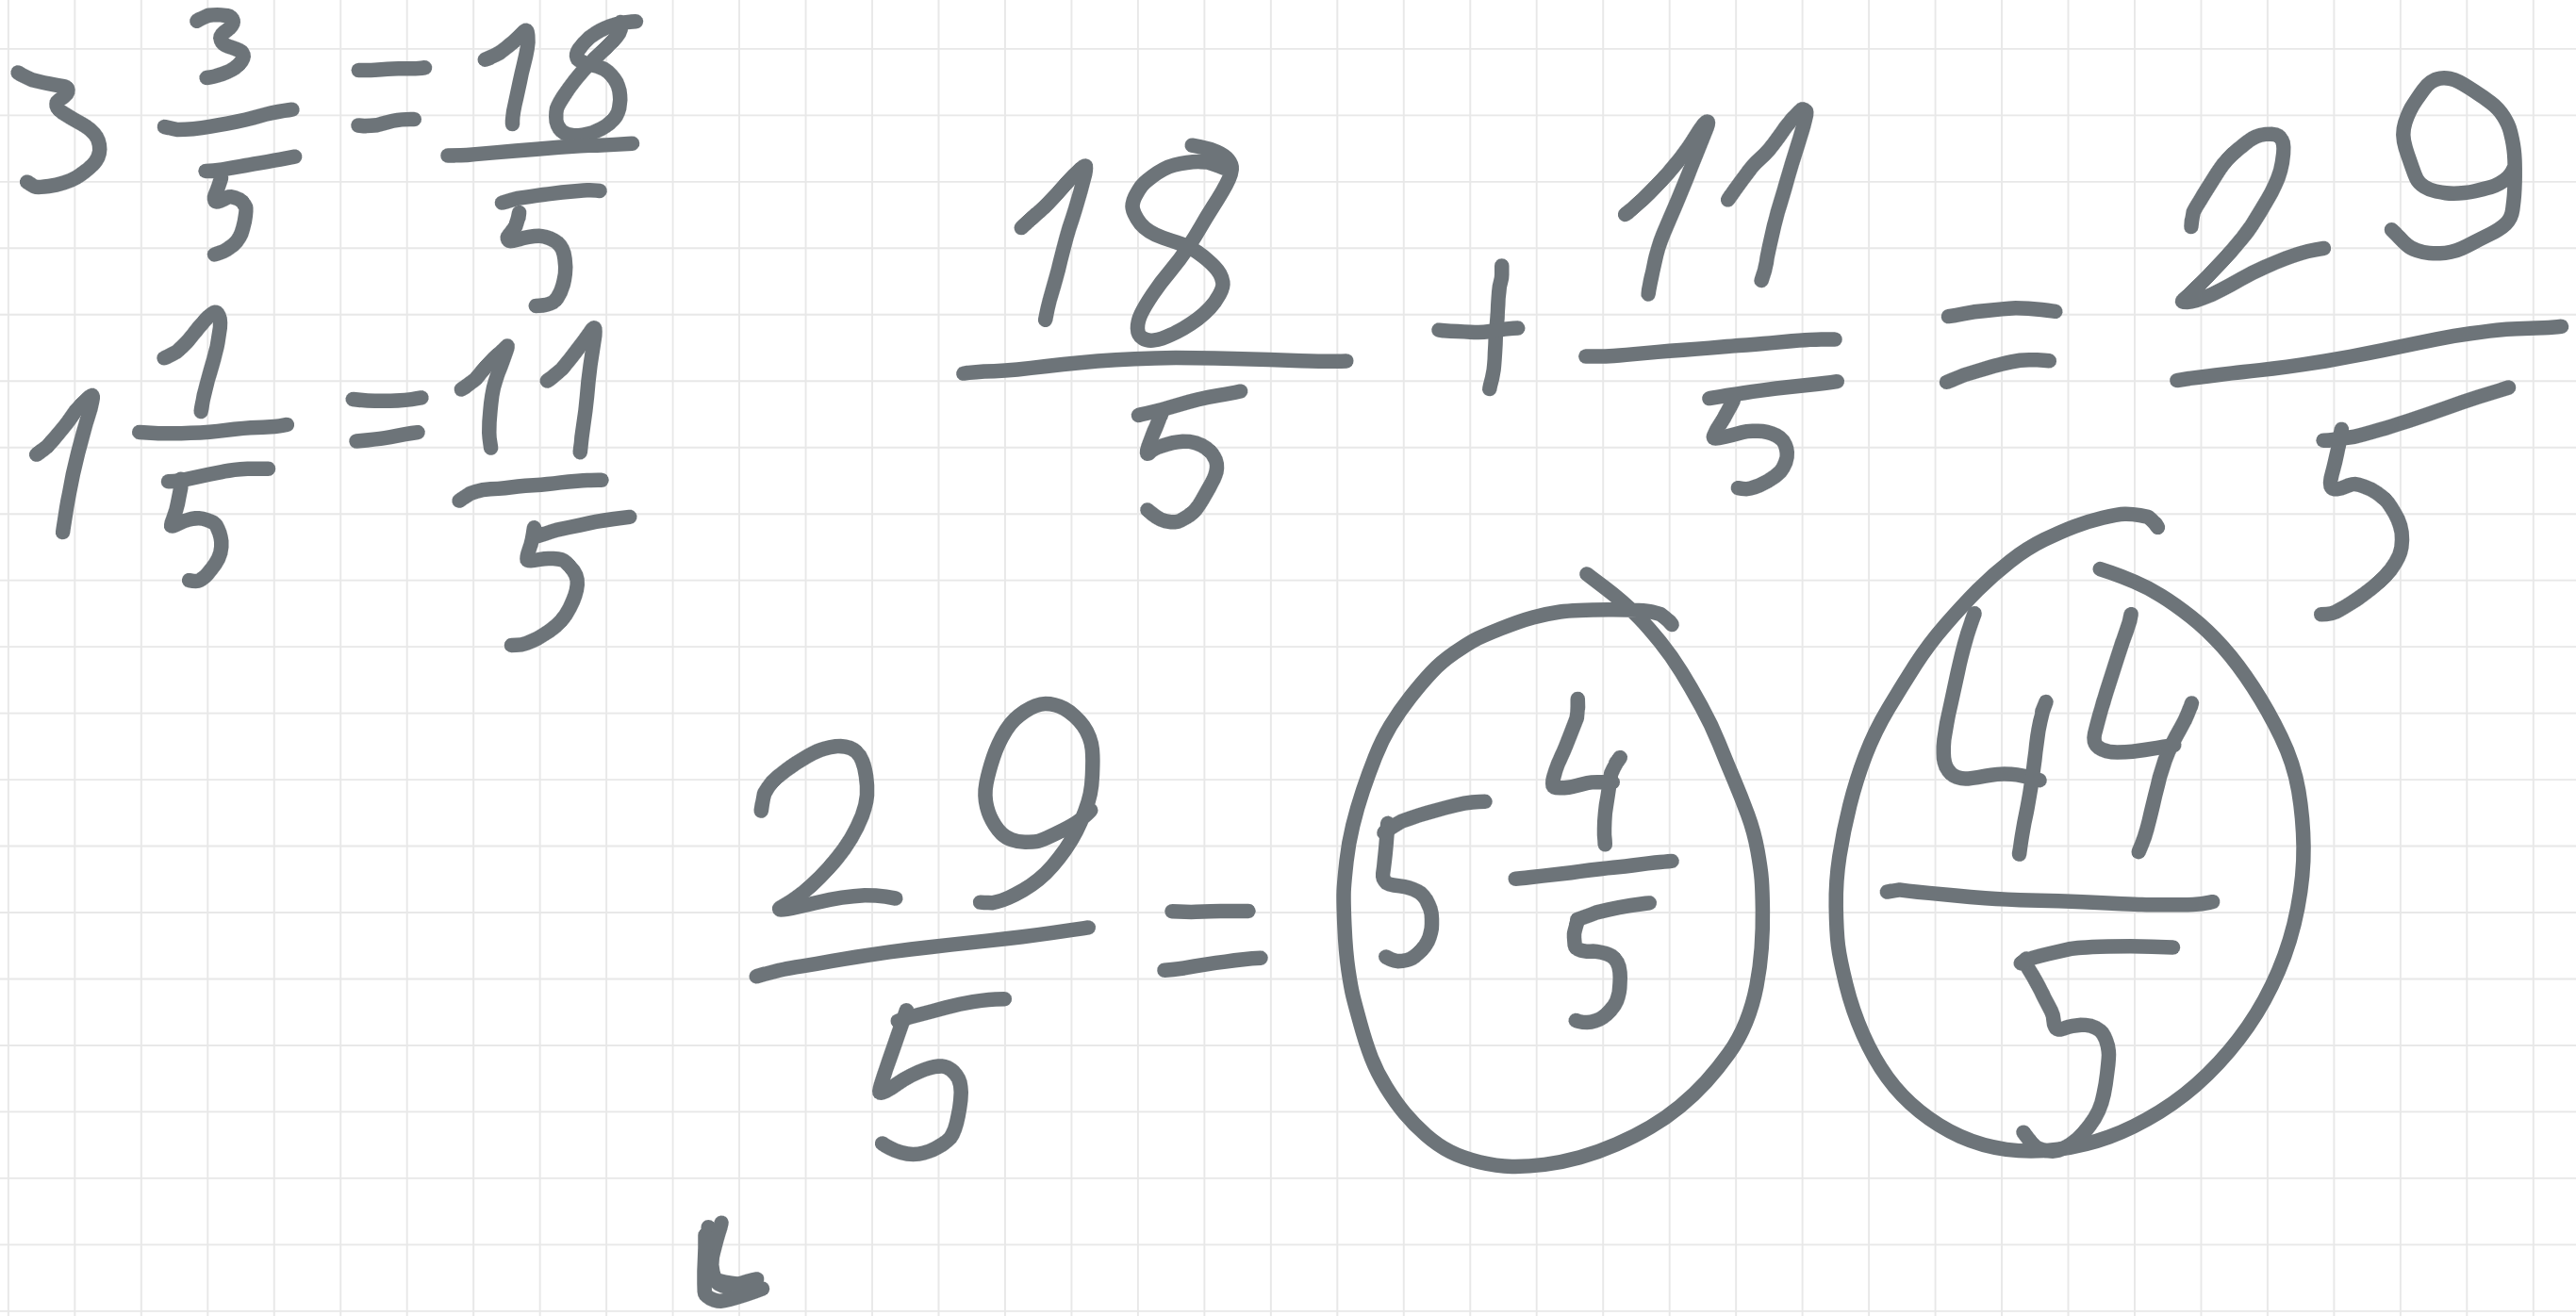 3 3/5 = 18/5
1 1/5 = 11/5
18/5 + 11/5 = 29/5
29/5 = 5 4/5 44/5